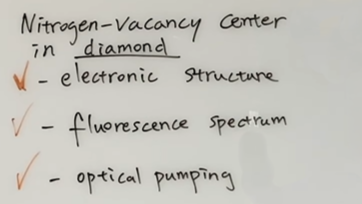 Nitrogen-vacancy center
in diamond
✓ - electronic structure
✓ - fluorescence spectrum
✓ - optical pumping